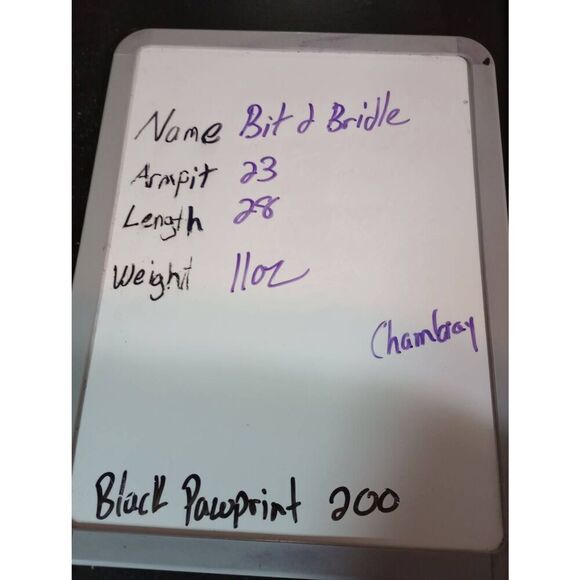 Name Bit & Bridle
Armpit 23
Length 28
Weight 11oz
Chambray
Black Pawprint 200